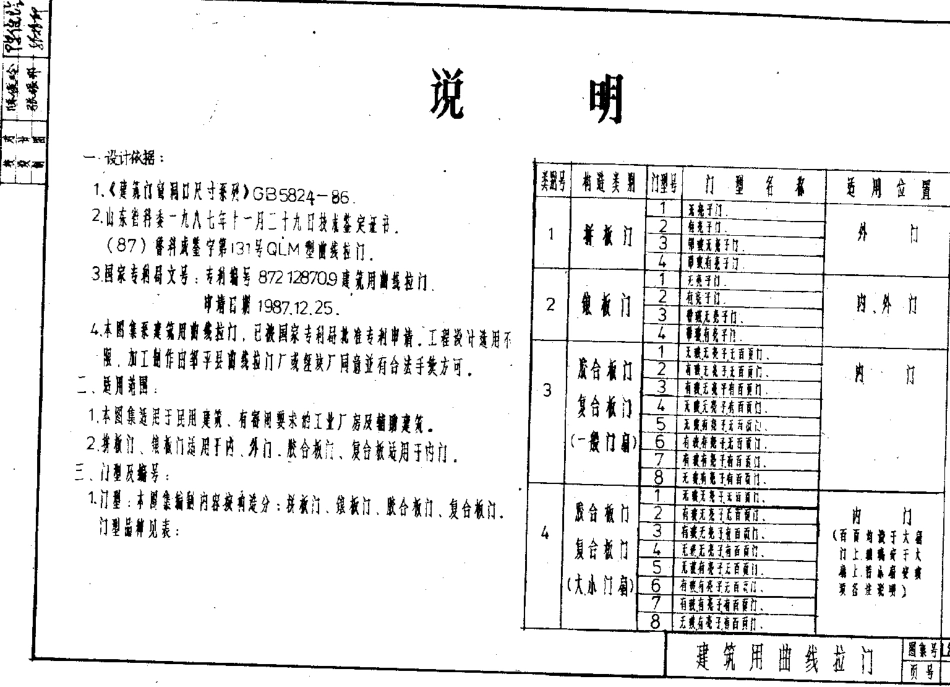 说 明
一 设计依据：
1.《建筑门窗洞口尺寸系列》GB5824-86.
2.山东省科委一九八七年十一月二十九日技术鉴定证书.
(87)鲁科成鉴字第131号QLM型曲线拉门.
3.国家专利局文号：专利编号 87212870.9 建筑用曲线拉门.
申请日期 1987.12.25.
4.本图集系建筑用曲线拉门，已被国家专利局批准专利申请。工程设计选用不
限，加工制作由邹平县曲线拉门厂或经该厂同意并有合法手续方可。
二、适用范围：
1.本图集适用于民用建筑、有
要求的工业厂房及辅助建筑。
2.拼板门、镶板门适用于内、外门.胶合板门、复合板适用于内门.
三、门型及编号：
1.门型：本图集编制内容按构造分：拼板门、镶板门、胶合板门、复合板门.
门型品种见表：
类别号 构造类别 门型号 门型名称 适用位置
1 拼板门 外门
1 无亮子门.
2 有亮子门.
3 带玻无亮子门.
4 带玻有亮子门.
2 镶板门 内、外门
1 无亮子门.
2 有亮子门.
3 带玻无亮子门.
4 带玻有亮子门.
3 胶合板门 复合板门 (一般门扇) 内门
1 无玻无亮子无百页门.
2 有玻无亮子无百页门.
3 有玻无亮子有百页门.
4 无玻无亮子有百页门.
5 无玻有亮子无百页门.
6 有玻有亮子无百页门.
7 有玻有亮子有百页门.
8 无玻有亮子有百页门.
4 胶合板门 复合板门 (大小门扇) 内门
1 无玻无亮子无百页门.
2 有玻无亮子无百页门.
3 有玻无亮子有百页门.
4 无玻无亮子有百页门.
5 无玻有亮子无百页门.
6 有玻有亮子无百页门.
7 有玻有亮子有百页门.
8 无玻有亮子有百页门.
建筑用曲线拉门
图集号
页号